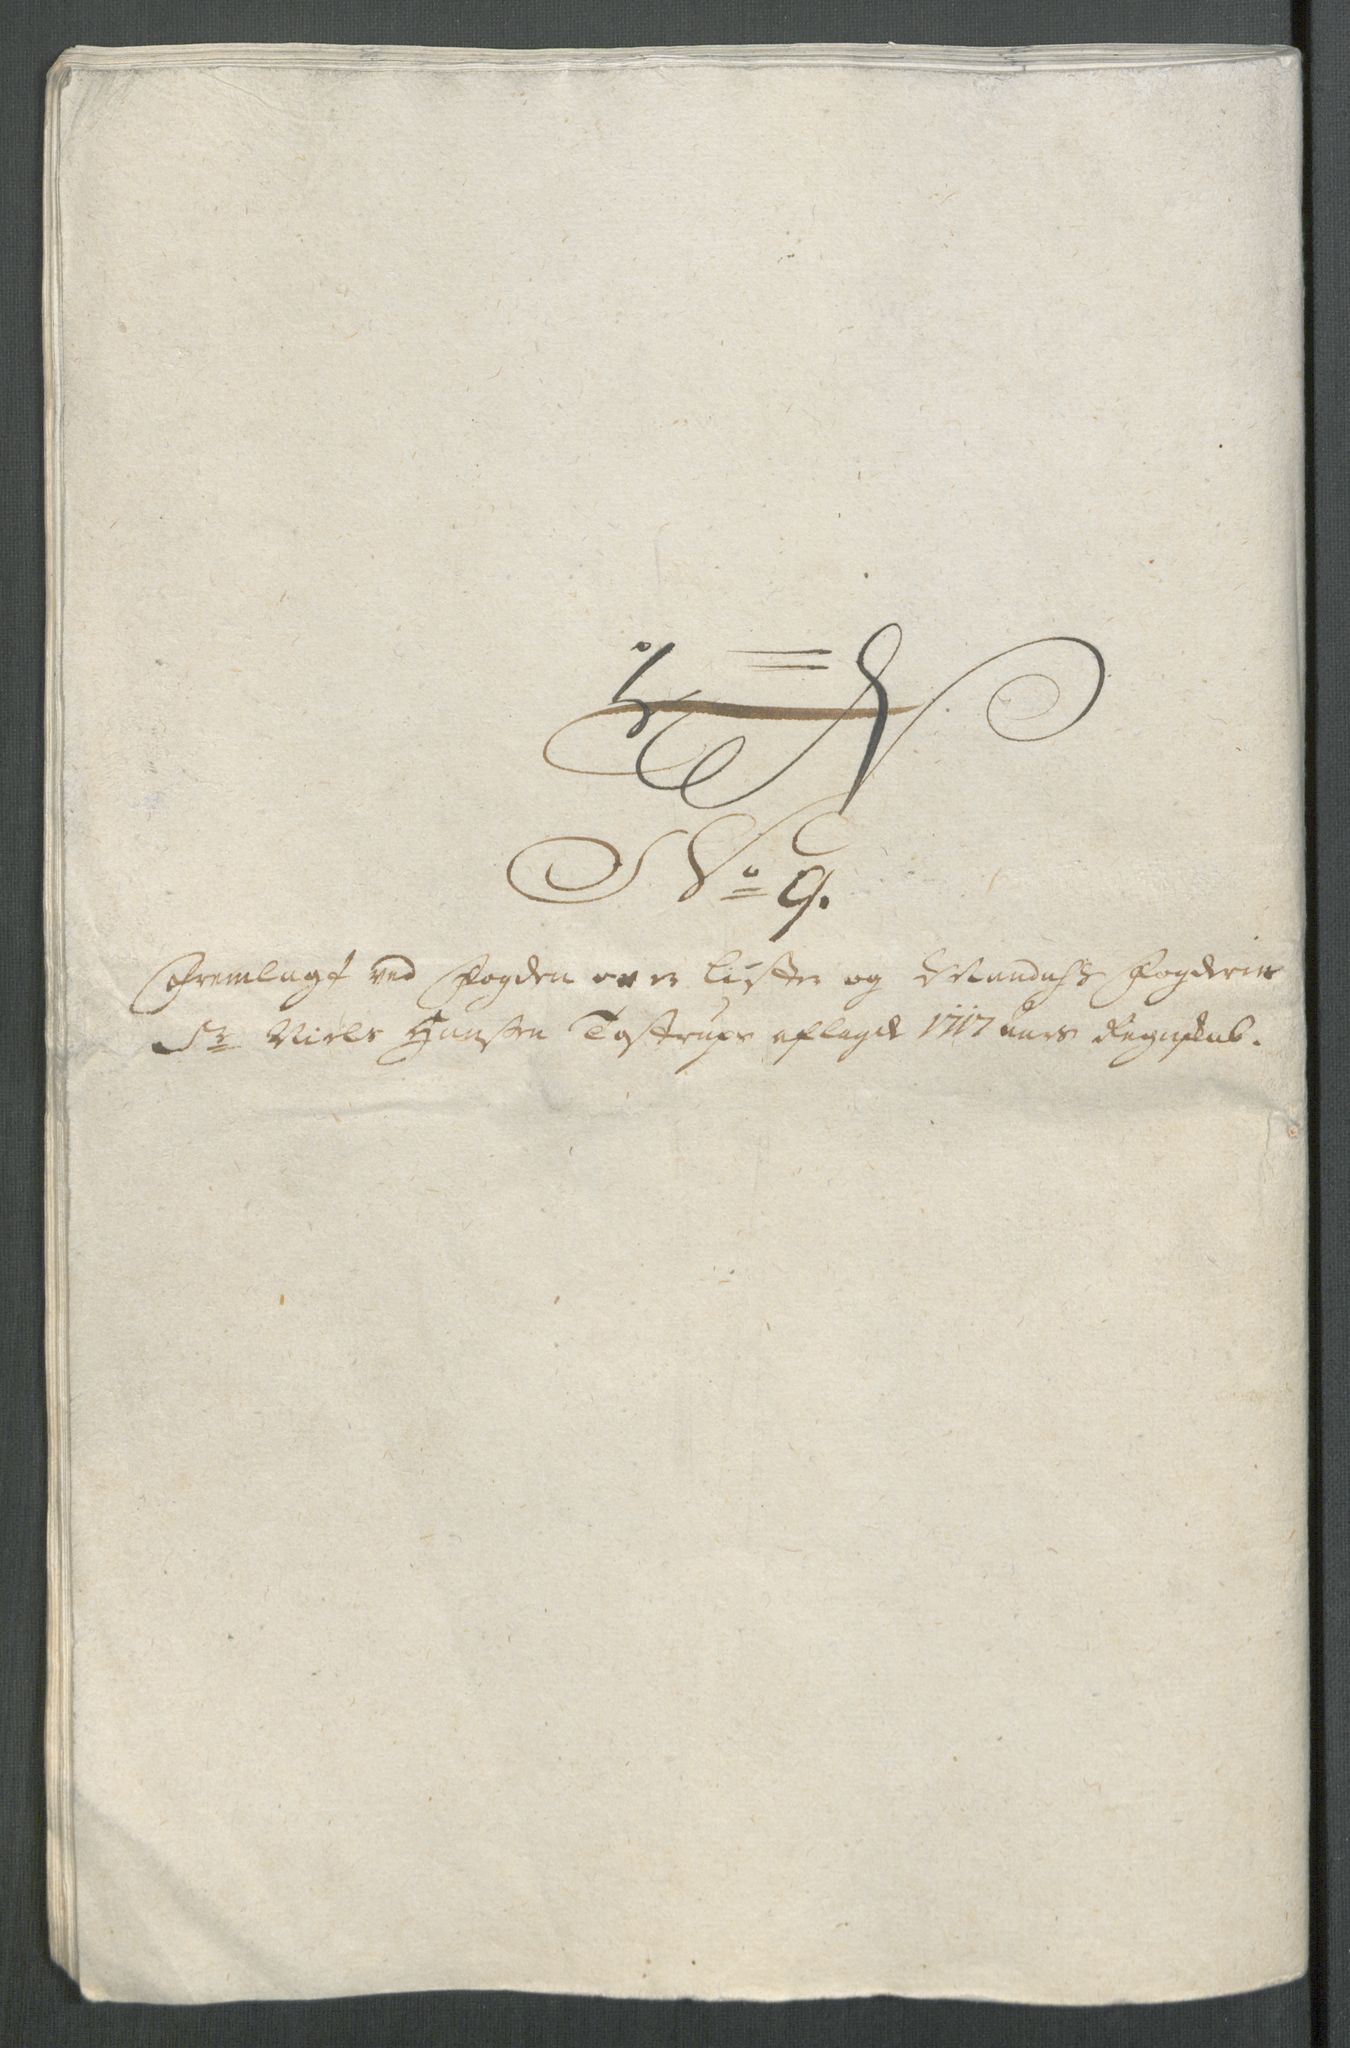 No 9.
Fremlagt ved Fogden over Lister og Mandahls Fogderie
Sr Niels Hansen Tostrups aflagde 1717 aars Regnskab.